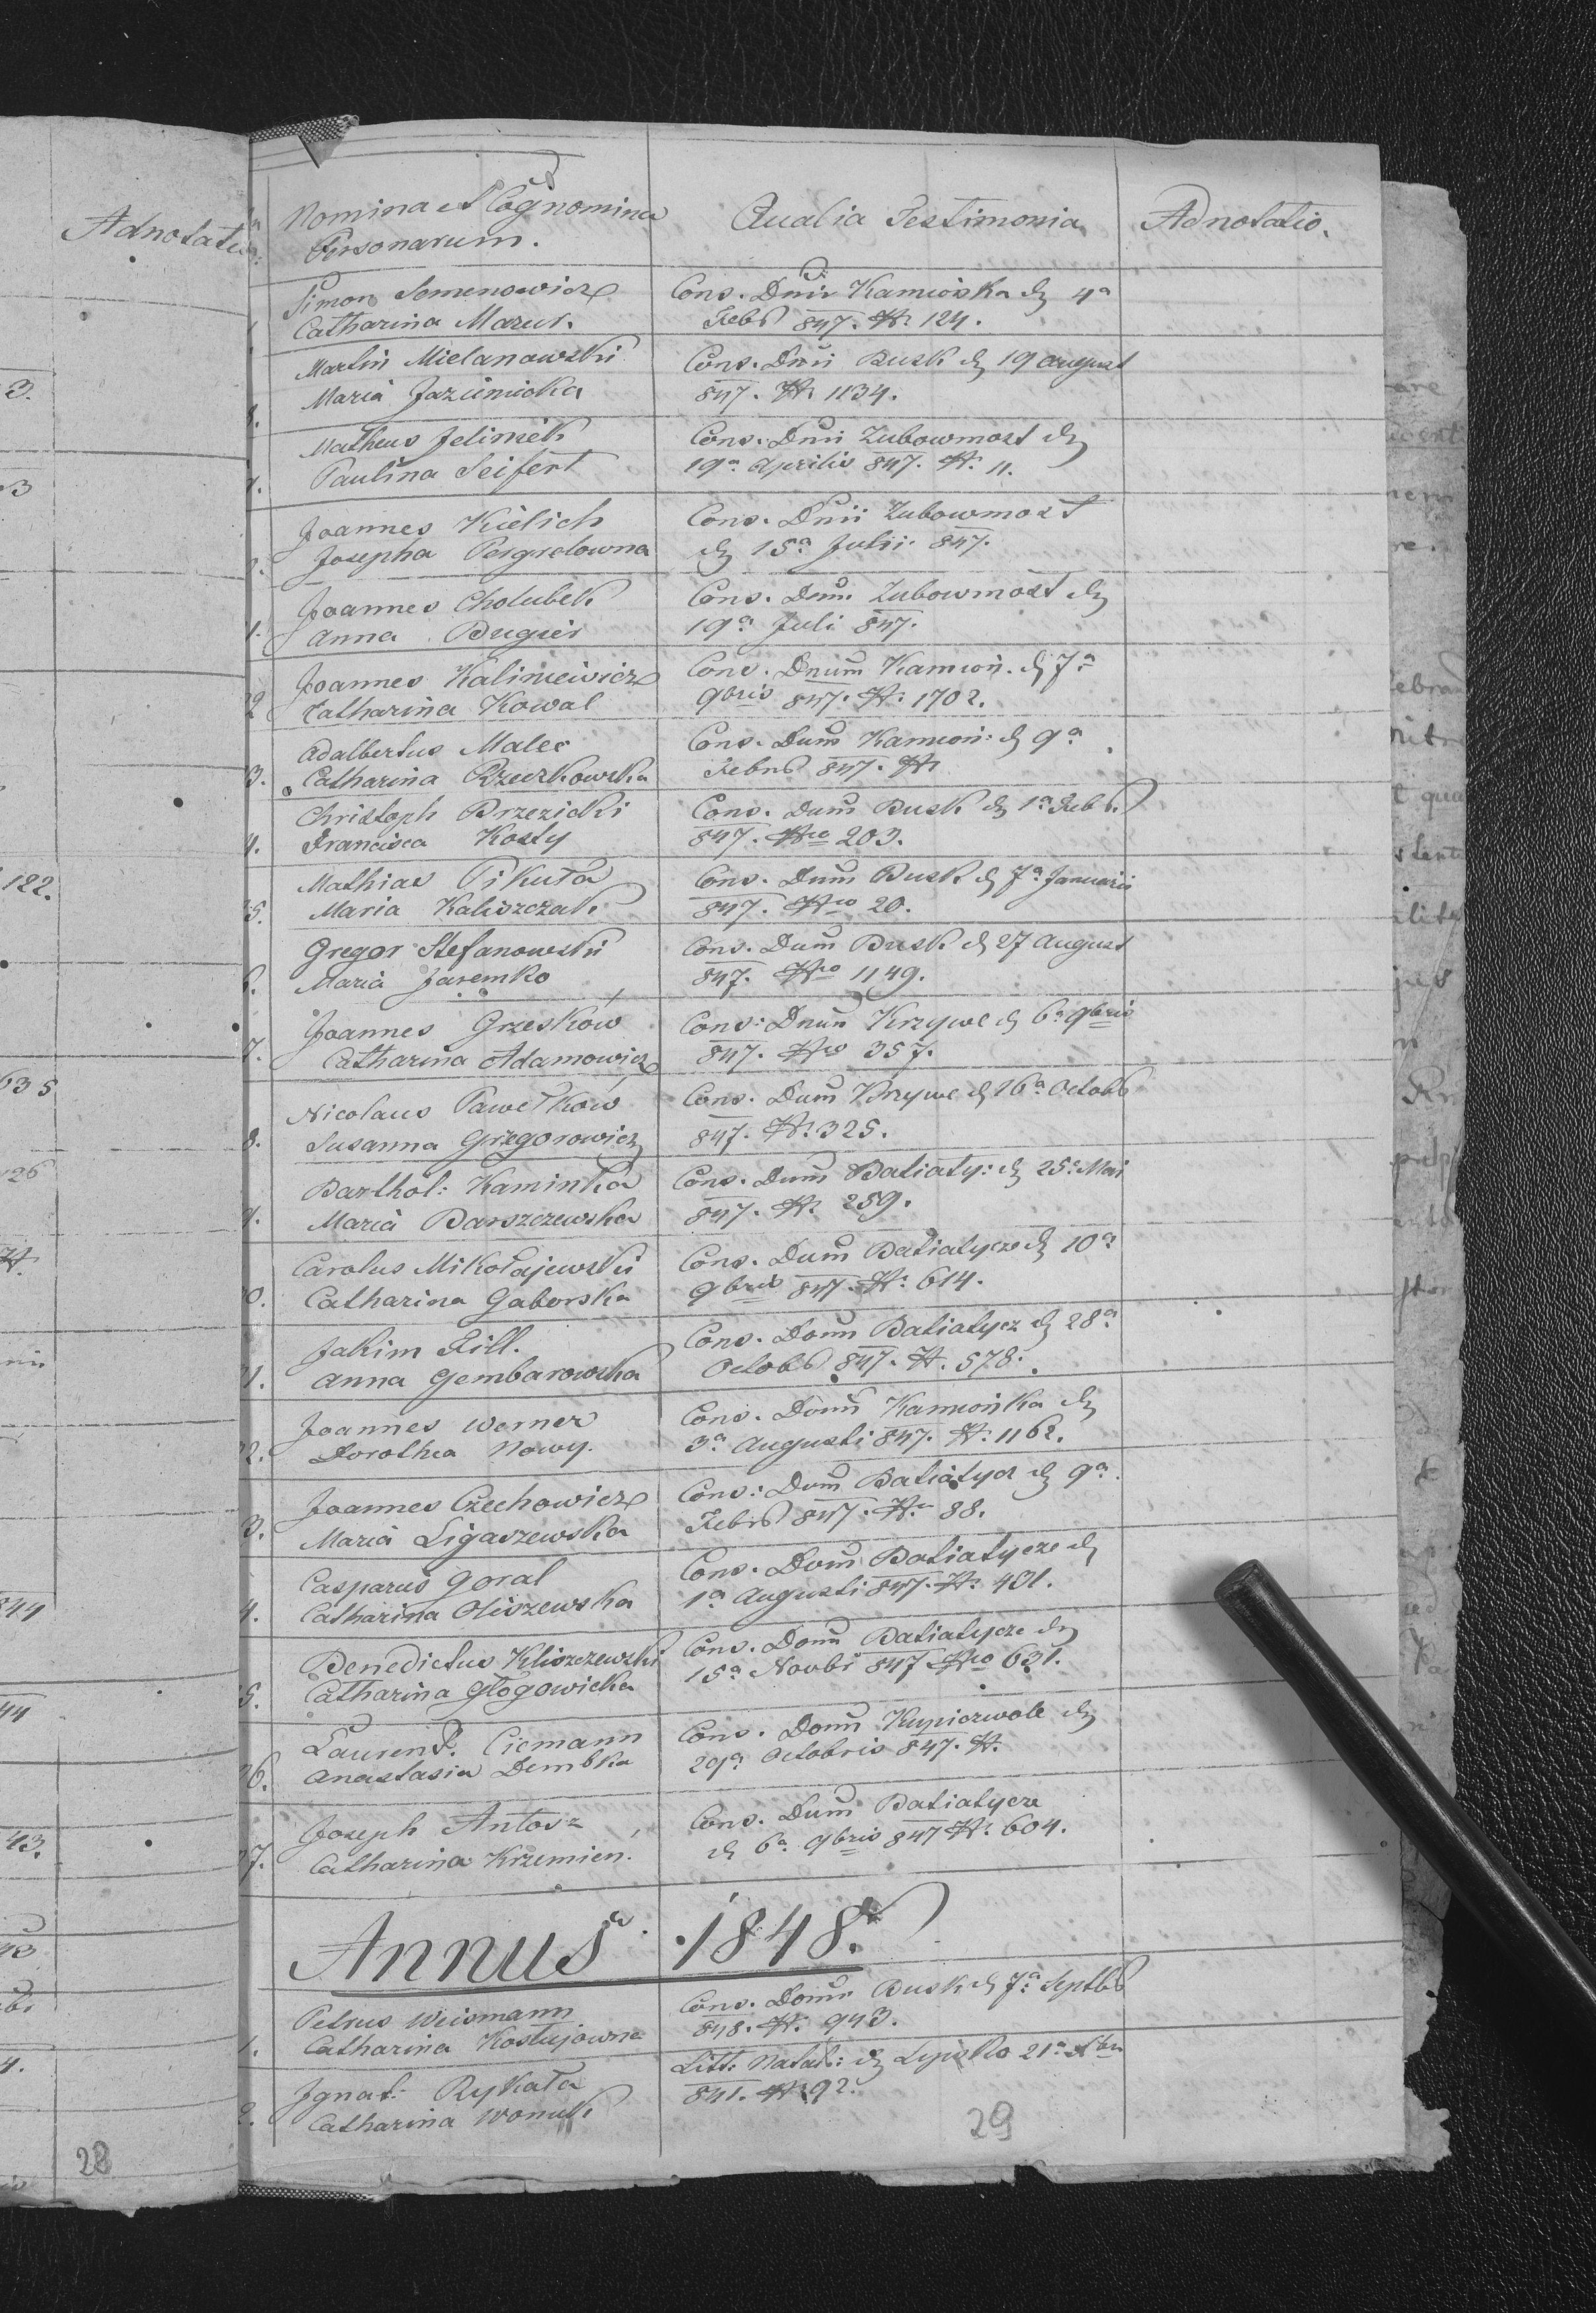 Adnotatio
Nomina et Cognomina
Personarum.
Qualia Testimonia
Adnotatio.
Simon Semenowicz
Catharina Mazur.
Cons. Dnii Kamionka d 4a
Febr 847. N 124.
Martin Mielanowski
Maria
Cons. Dnii Busk d 19 August
847. N 1134.
Matheus Jelinek
Paulina Seifert
Cons. Dnii Zubowmost d
19a Aprilis 847. N. 11.
Joannes Kielich
Josepha
Cons. Dnii Zubowmost
d 15a Julii 847.
Joannes Cholubek
Anna Bugier
Cons. Dnii Zubowmost d
19a Juli 847.
Joannes Kaliniewicz
Catharina Kowal
Cons. Dnum Kamion. d 7a
9bris 847. N. 1702.
Adalbertus Malec
3. Catharina Rzeczkowska
Cons. Dum Kamion: d 9a
Febr 847. N
Christoph Brzezicki
4. Francisca Kosty
Cons. Dum Busk d 1a Feb.
847. Nro 203.
Mathias Pikuła
5. Maria Kaliszczak
Cons. Dum Busk d 7a Januarii
847. Nro 20.
Gregor Stefanowski
6. Maria Jaremko
Cons. Dum Busk d 27 August
847. Nro 1149.
Joannes Grzeskow
7. Catharina Adamowicz
Cons: Dnum Krzywe d 6a 9bris
847. Nro 357.
Nicolaus Pawełkow
8. Susanna Grzegorowicz
Cons. Dum Krzywe d 16a Octob
847. N. 325.
Barthol: Kaminka
9. Maria Barszczewska
Cons. Dum Batiaty: d 25a Mai
847. N. 259.
Carolus Mikołajewski
0. Catharina Gaborska
Cons. Dum Batiatycze d 10a
9bris 847. N. 614.
Jakim Fill.
1. Anna Gembarowska
Cons. Dom Batiatycz d 28a
Octob 847. N. 578.
Joannes Werner
2. Dorothea Nowy.
Cons. Dom Kamionka d
3a Augusti 847. N. 1162.
Joannes Czechowicz
3. Maria Ligaszewska
Cons: Dom Batiatycz d 9a
Febr 847. N. 88.
Casparus Goral
4. Catharina Oliszewska
Cons. Dom Batiatycze d
1a Augusti 847. N. 401.
Benedictus Kliszczewski
5. Catharina Głogowicka
Cons. Dom Batiatycze d
15a Novbi 847 Nro 631.
Laurent. Ciemann
6. Anastasia Dembka
Cons. Dom Kupiczwola d
29a Octobris 847. N.
Joseph Antosz
7. Catharina Krzemien.
Cons. Dum Batiatycze
d 6a 9bris 847 N. 604.
Annus 1848.
Petrus Weismann
1. Catharina Kostujowna
Cons. Dom Busk d 7a Septb
848. N. 943.
Ignat: Rykała
2. Catharina
Litt: Natal: d 21a
841. N 92.
28
29